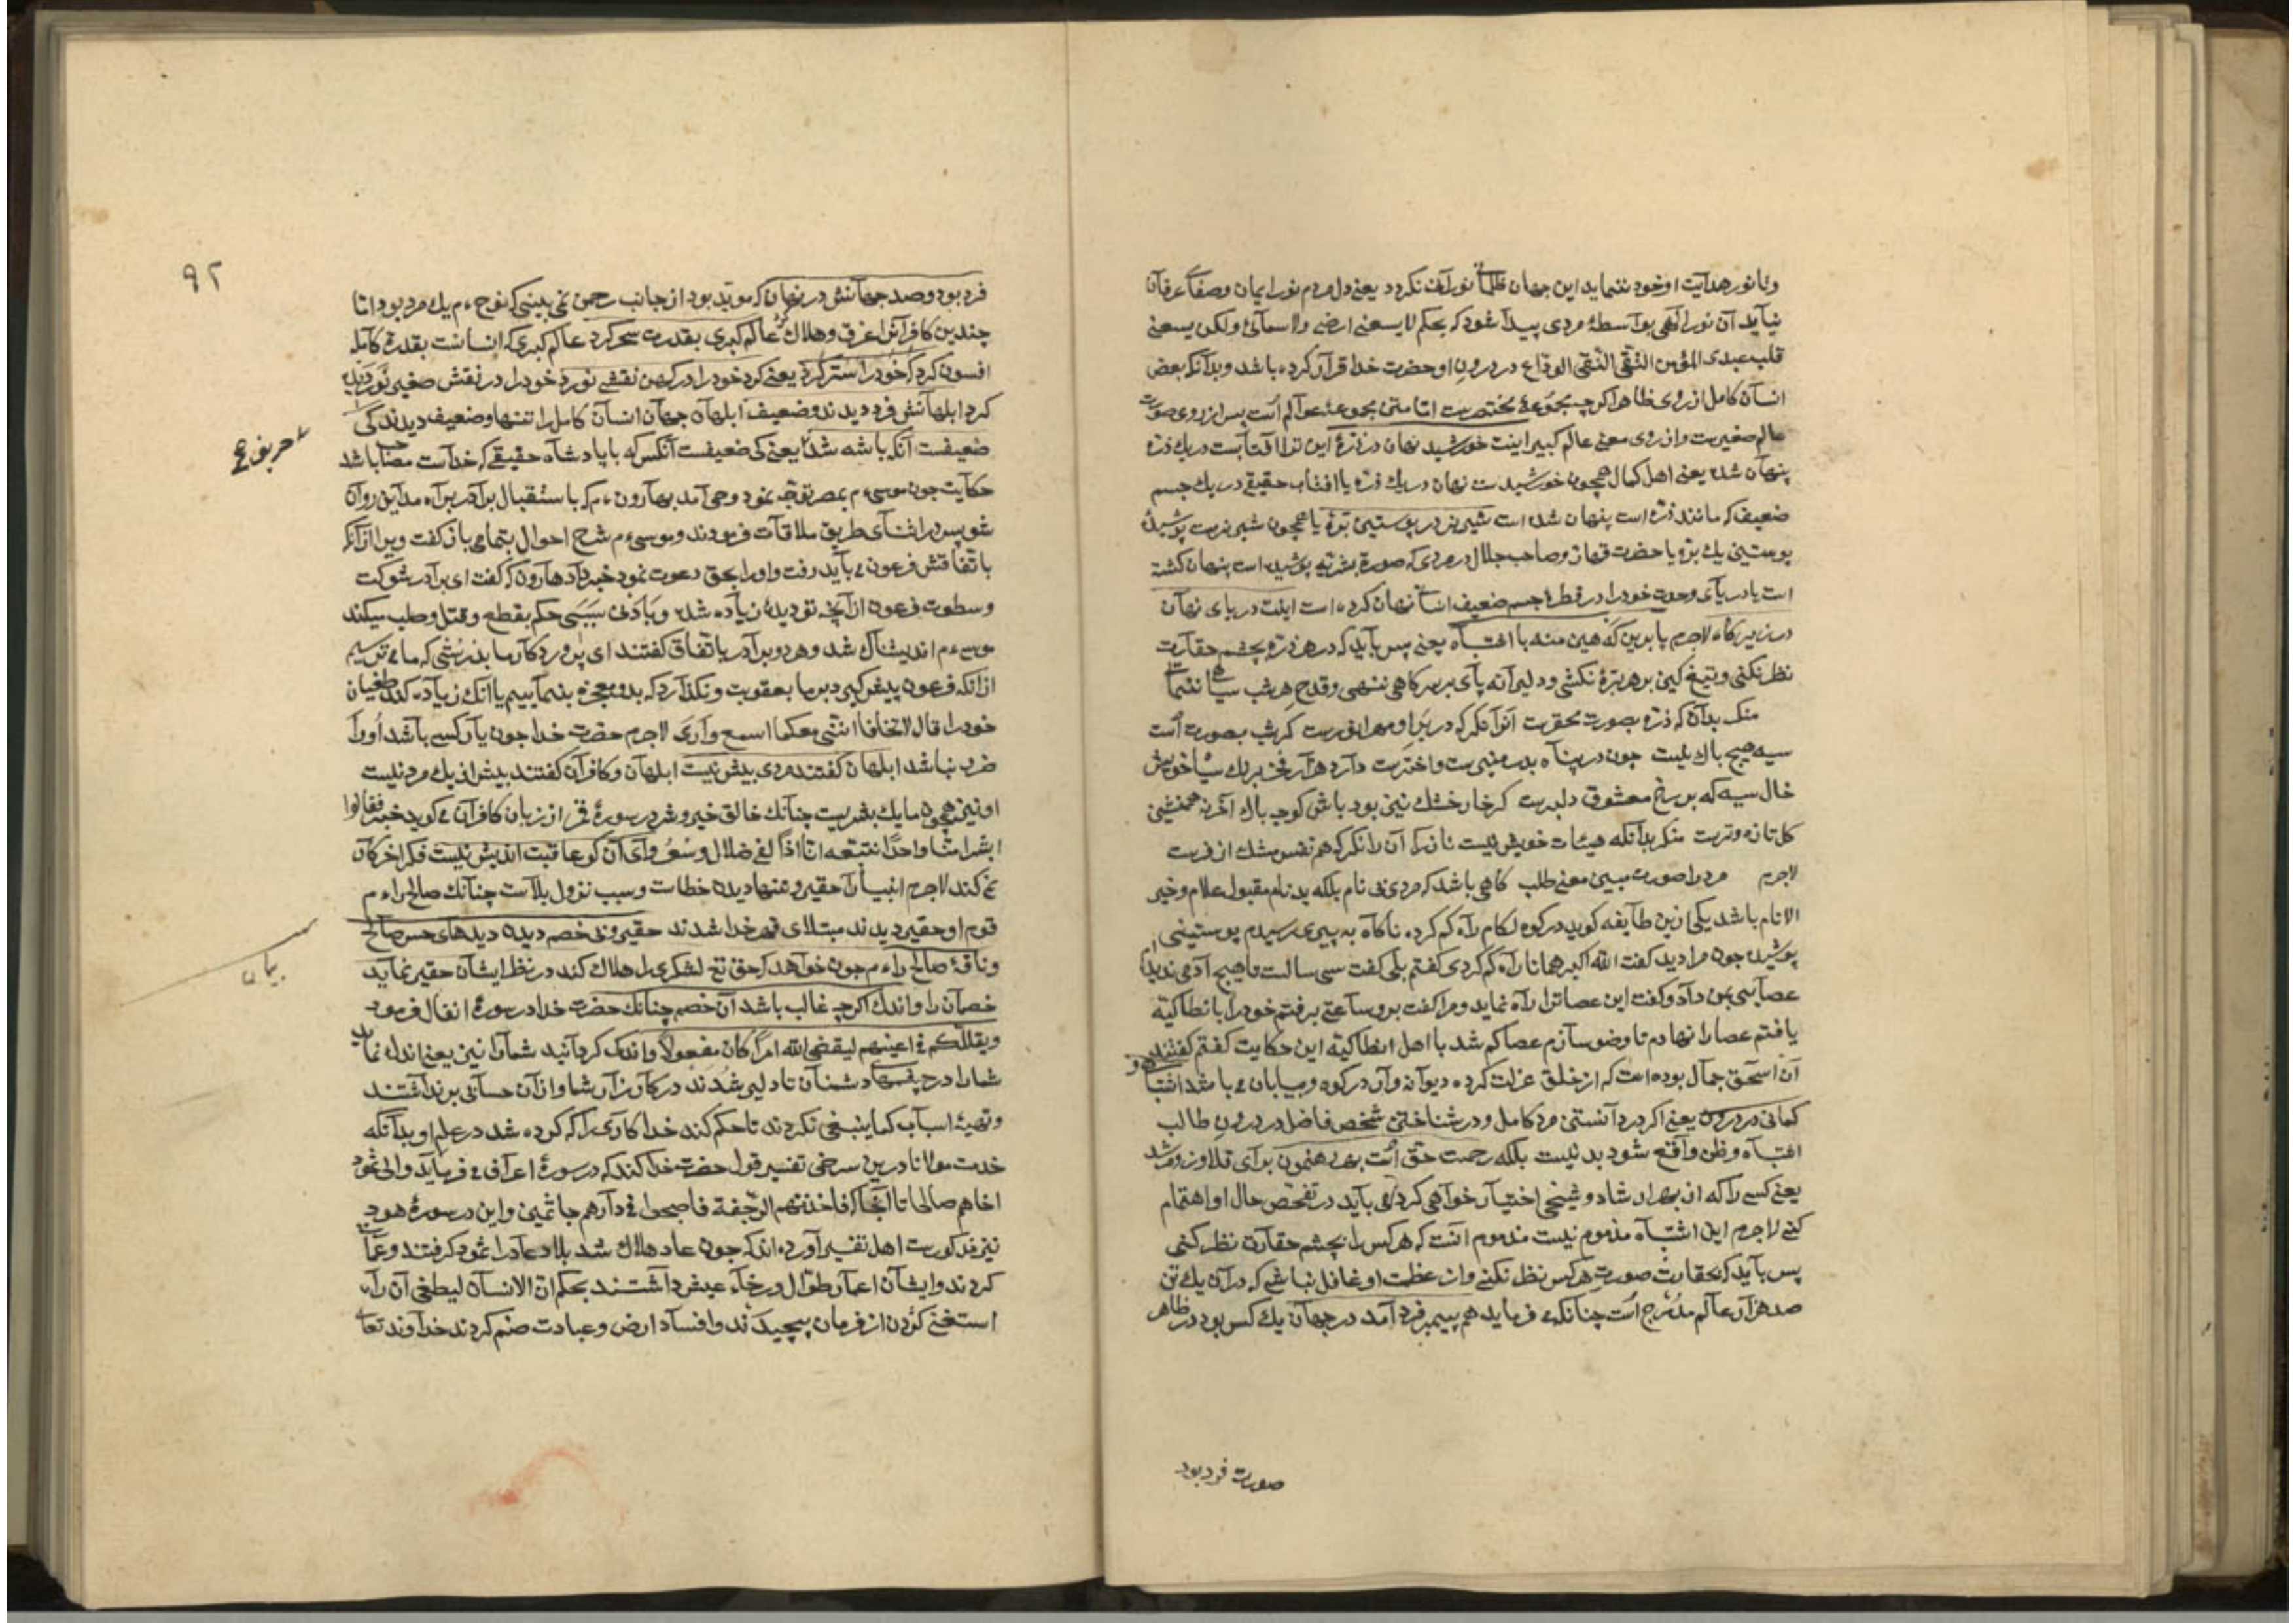 و تا نور هدایت او خود ننماید این جهان ظلمانی نورانی نکردد یعنی دل مردم نور ایمان و صفای عرفان
نیابد آن نور الهی بواسطهٔ مردی پیدا شود که بحکم لا یسعنی ارضی ولا سمائی ولکن یسعنی
قلب عبدی المؤمن التقی النقی الوداع در درون او حضرت خدا قرار کرده باشد و بدآنکه بعض
انسان کامل از روی ظاهر اکرچه مجموعهٔ مختصرست اما متن مجموعهٔ عوالم است پس از روی صورت
عالم صغیرست و از روی معنی عالم کبیر اینت خورشید نهان در ذرهٔ این ترا آفتابست در یک ذره
پنهان شده یعنی اهل کمال همچون خورشیدست نهان در یک ذره یا افتاب حقیقی در یک جسم
ضعیف که مانند ذره است پنهان شده است شیر نر در پوستین برهٔ یا همچون شیر نرست پوشیدهٔ
پوستین یک بره یا حضرت قهار و صاحب جلال در مردی که صورة بشریه پوشیده است پنهان کشته
است یا دریای وحدت خود را در قطرهٔ جسم ضعیف انسان نهان کرده است اینت دریای نهان
در زیر کاه لاجرم پا بدین که هین منه با اشتباه یعنی پس باید که در هر ذره بچشم حقارت
نظر نکنی و تیغ کین بر هر برهٔ نکشی و دلیرانه پای بر سر کاهی ننهی و قدح هر شب سیاهی ننمایی
منکر بدآن که ذره بصورت محقرست آنرا نکر که در بر او مهر انورست کر شب بصورت است
سیه هیچ باک نیست چون در پناه بدر منیرست و اخترست دارد هزار فخر بر سیاهی خویش
خال سیه که بر رخ معشوق دلبرست کر خار خشک نیز بود باش کو چه باک آخر نه همنشینی
کل تازه و ترست منکر بدآنکه هیئات خویش نیست نافه را آن را نکر که هم نفس مشک اذفرست
لاجرم مرد را صورت مبین معنی طلب کاهی باشد که مردی بی نام بلکه بدنام مقبول علام و خیر
الانام باشد یکی ازین طایفه کوید در کوه لکام راه کم کرده ناکاه به پیری رسیدم پوستینی
پوشیده چون مرا دید کفت الله اکبر همانا راه کم کردی کفتم بلی کفت سی سالست تا هیچ آدمی ندیده‌ام
عصایی بمن داد و کفت این عصا ترا راه نماید و مرا کفت برو ساعتی برفتم خود را با نطاکیه
یافتم عصا را نهادم تا وضو سازم عصا کم شد با اهل انطاکیه این حکایت کفتم کفتند
آن اسحق جمال بوده است که از خلق عزلت کرده دیوانه وار در کوه و بیابان می باشد اشتباه و
کمانی در درون یعنی اکر در دانستن مرد کامل و در شناختن شخص فاضل در درون طالب
اشتباه و ظن واقع شود بد نیست بلکه رحمت حق است بهر رهنمون برای قلاوز و مرشد
یعنی کسی را که از بهر ارشاد و شیخی اختیار خواهی کرد می باید در تفحص حال او اهتمام
کنی لاجرم این اشتباه مذموم نیست مذموم آنست که هر کس را بچشم حقارت نظر کنی
پس باید که بحقارت صورت هر کس نظر نکنی و از عظمت او غافل نباشی که در آن یک تن
صد هزار عالم مندرج است چنانکه می فرماید هم پیمبر فرد آمد در جهان یک کس بود در ظاهر
صورت فرد بود
۹۲
فرد بود و صد جهانش در نهان که مؤید بود از جانب رحمن نمی بینی که نوح ءم یک مرد بود اما
چندین کافرانرا غرق و هلاک کرد عالم کبری بقدرت سحر کرد عالم کبری که انسانست بقدرة کامله
افسون کرد که خود را ستر کرد یعنی کرد خود را در کهین نقشی نورد خود را در نقش صغیر نوردیده
کرد ابلهانش فرد دیدند و ضعیف ابلهان جهان انسان کامل را تنها و ضعیف دیدند کی
ضعیفست آنکه با شه شد حریف یعنی کی ضعیفست آنکس که با پادشاه حقیقی که خداست مصاحب باشد
حکایت چون موسی ءم بمصر توجه نمود وحی آمد بهارون ءم که باستقبال برادر براه مداین روان
شو پس در اثنای طریق ملاقات فرمودند و موسی ءم شرح احوال بتمامی باز کفت و پس از آنکه
باتفاقش فرعون می باید رفت و او را بحق دعوت نمود خبر داد هارون که کفت ای برادر شوکت
و سطوت فرعون از آنچه تو دیدهٔ زیاده شده و بادنی سببی حکم بقطع و قتل و صلب میکند
موسی ءم اندیشناک شد و هر دو برادر باتفاق کفتند ای پروردکار ما بدرستی که ما می ترسیم
از آنکه فرعون پیش کیرد بر ما بعقوبت و نکذارد که بدو معجزه بنماییم یا آنک زیاده کند طغیان
خود را قال لا تخافا اننی معکما اسمع وأری لاجرم حضرت خدا چون یار کسی باشد اورا
ضرر نباشد ابلهان کفتند مردی بیش نیست ابلهان و کافران کفتند بیش از یک مرد نیست
او نیز همچون ما یک بشریست چنانک خالق خیر و شر در سورهٔ قمر از زبان کافران می کوید خبر فقالوا
ابشرا منا واحدا نتبعه انا اذا لفی ضلال وسعر وای آن کو عاقبت اندیش نیست فکر آخر کار
نمی کند لاجرم انبیا را حقیر و تنها دیدن خطاست و سبب نزول بلاست چنانک صالح را ءم
قوم او حقیر دیدند مبتلای قهر خدا شدند حقیر و بی خصم دیدن دیدهای حس صالح
و ناقهٔ صالح را ءم چون خواهد که حق تع لشکری را هلاک کند در نظر ایشان حقیر نماید
خصمان را و اندک اکرچه غالب باشد آن خصم چنانک حضرت خدا در سورهٔ انفال فرمود
ویقللکم فی اعینهم لیقضی الله امرا کان مفعولا و اندک کردانید شما را نیز یعنی اندک نماید
شما را در چشمهای دشمنان تا دلیر شدند در کارزار شما و از آن حسابی برنداشتند
و تهیهٔ اسباب کما ینبغی نکردند تا حکم کند خدا کاری را که کرده شد در علم او بدآنکه
خدمت مولانا درین سرخی تفسیر قول حضرت خدا کند که در سورهٔ اعراف می فرماید والی ثمود
اخاهم صالحا تا آنجا که فاخذتهم الرجفة فاصبحوا فی دارهم جاثمین و این در سورهٔ هود
نیز مذکورست اهل تفسیر آورده اند که چون عاد هلاک شد بلاد عاد را ثمود کرفتند و عمارت
کردند و ایشان اعمار طوال و رخاء عیش داشتند بحکم ان الانسان لیطغی ان رآه
استغنی کردن از فرمان پیچیدند و افساد ارض و عبادت صنم کردند خداوند تعالی
حریف
بیان